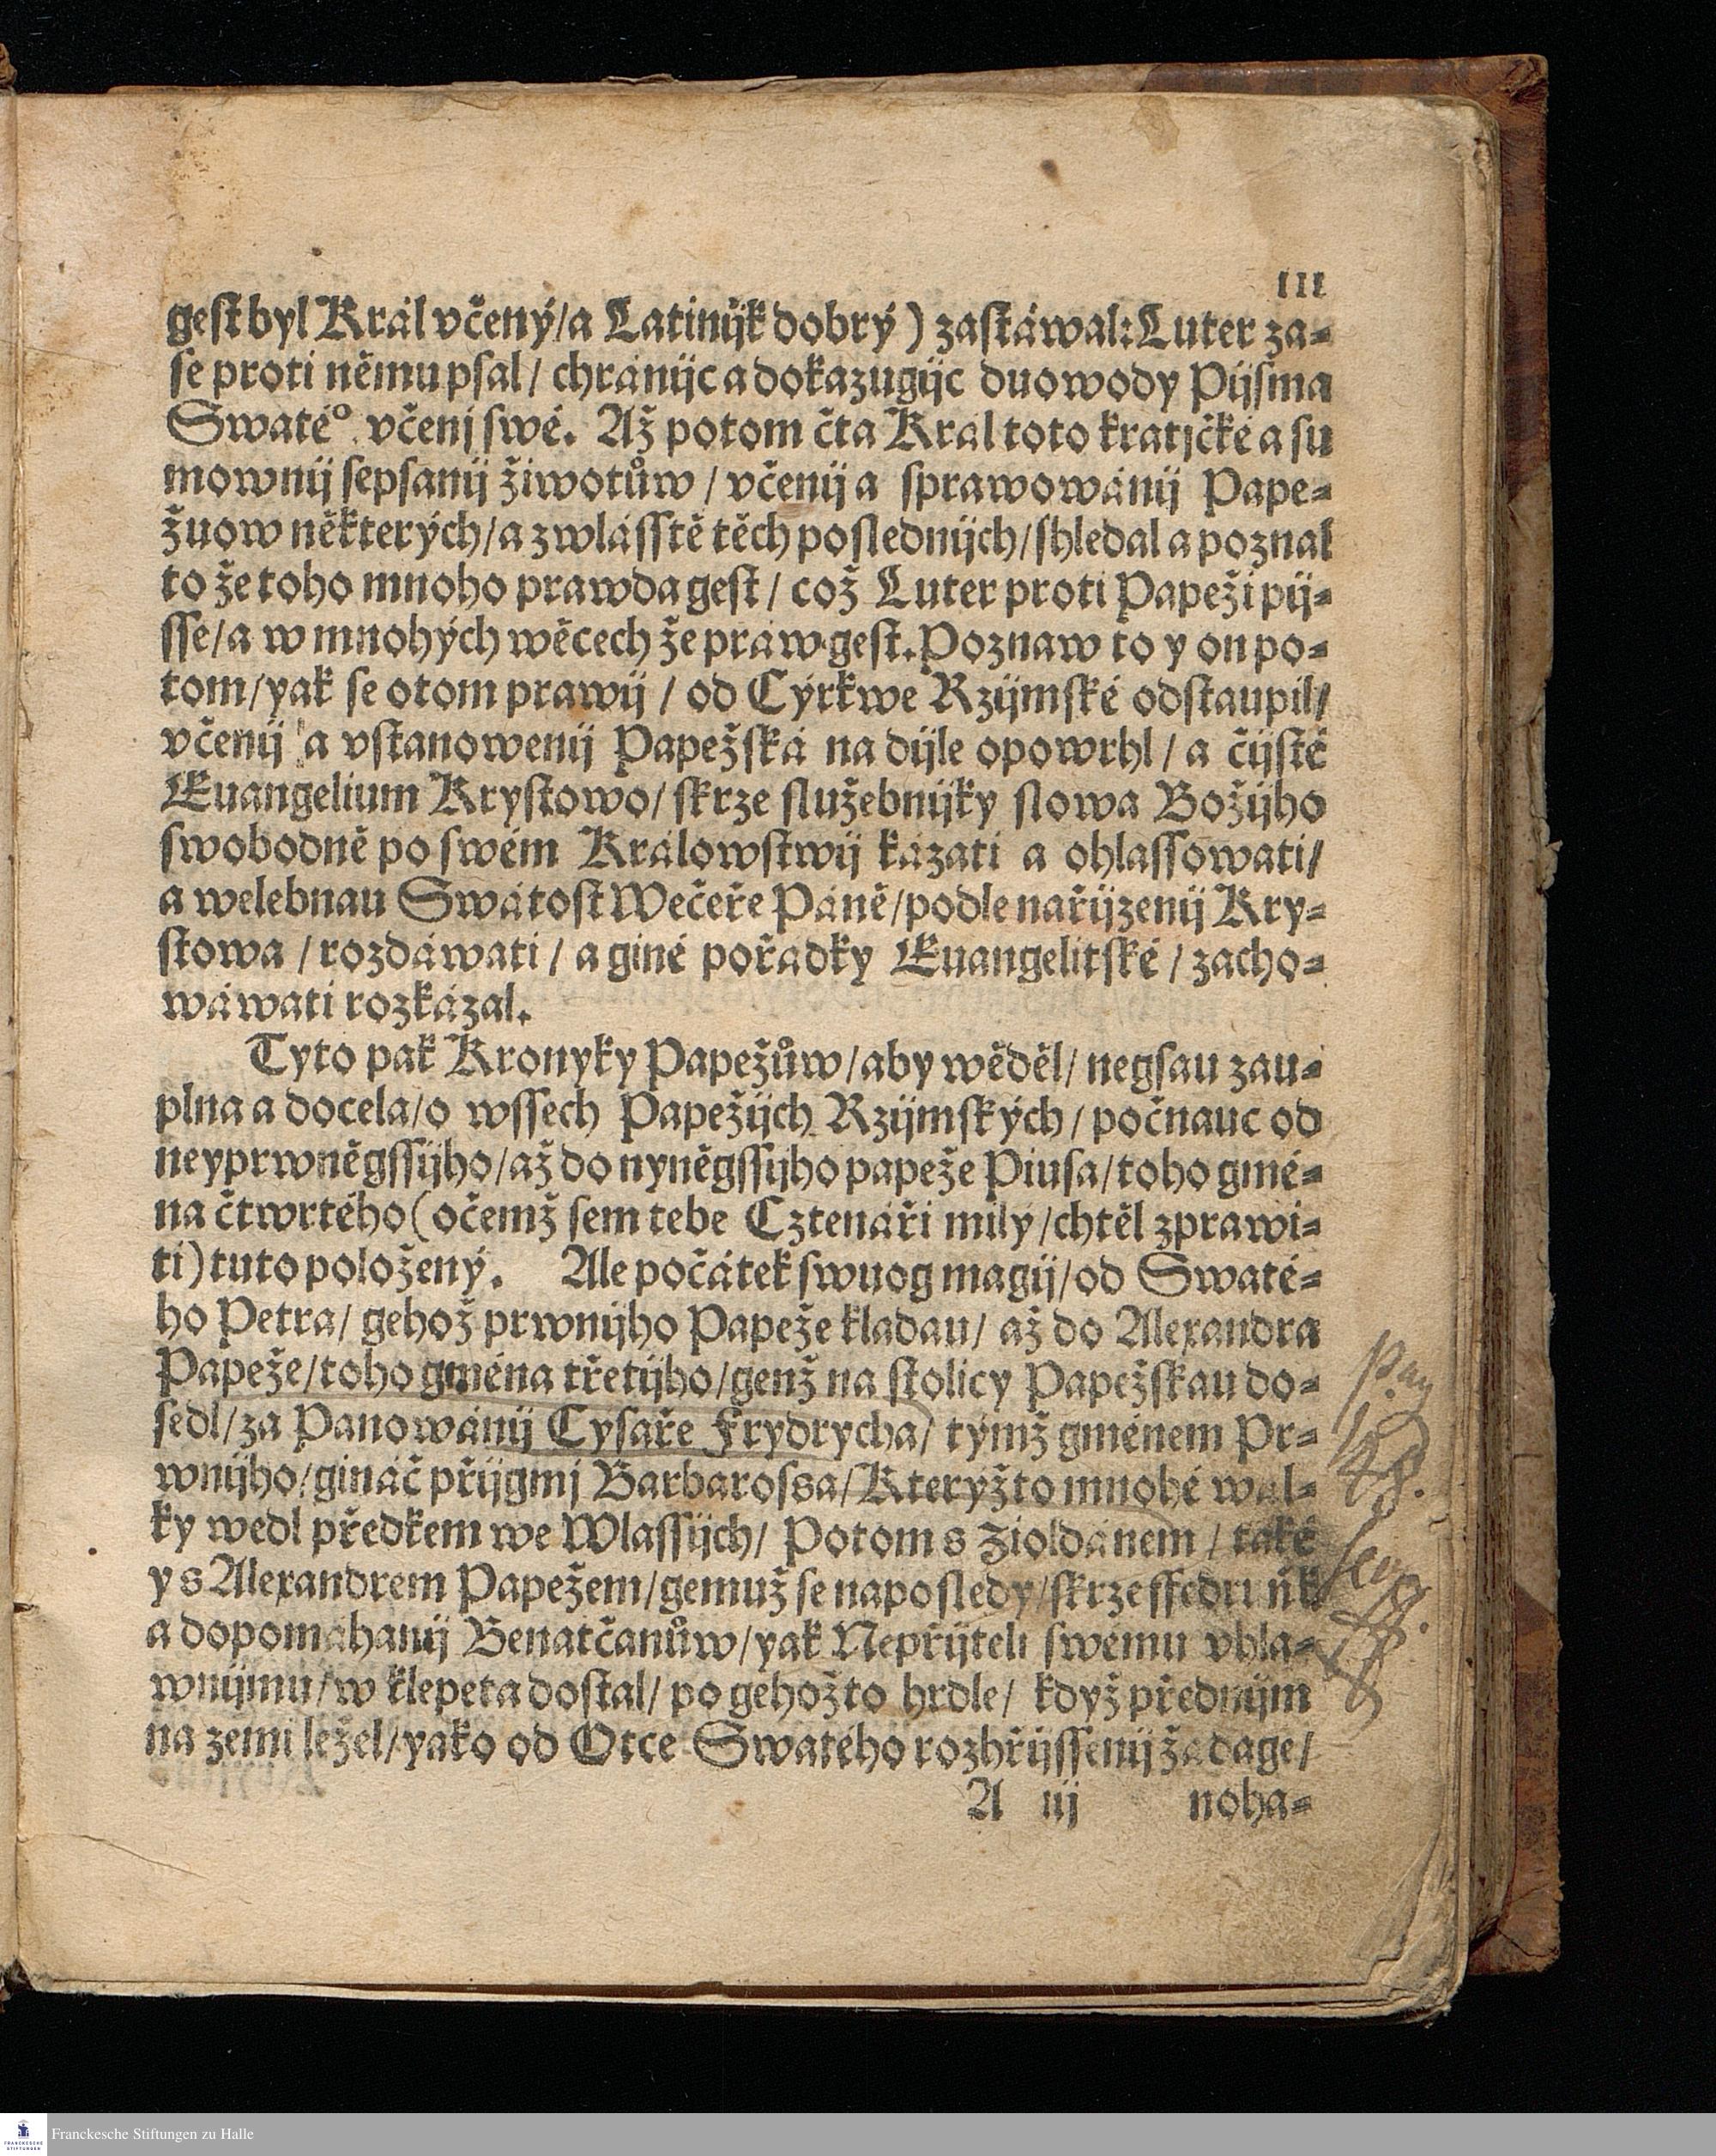 III
gest byl Král včený/a Latinijk dobrý) zastáwal: Luter za=
se proti němu psal/ chránijc a dokazugijc duowody Pijsma
Swaté° včenj swé. Až potom čta Král toto kratjčké a su
mownij sepsanij žiwotůw/ včenij a sprawowánij Pape=
žuow některých/a zwlásstě těch poslednijch/shledal a poznal
to že toho mnoho prawda gest/ což Luter proti Papeži pij=
sse/a w mnohých wěcech že práw gest. Poznaw to y on po=
tom/yak se otom prawij/ od Cýrkwe Rzijmské odstaupil/
včenij a vstanowenij Papežská na dijle opowrhl/ a čijstě
Euangelium Krystowo/ skrze služebnijky slowa Božijho
swobodně po swém Králowstwij kázati a ohlassowati/
a welebnau Swátost Wečeře Páně/podle nařijzenij Kry=
stowa/ rozdáwati/ a giné pořádky Euangelitské/ zacho=
wáwati rozkázal.
Tyto pak Kronyky Papežůw/aby wěděl/ negsau zau=
plna a docela/o wssech Papežijch Rzijmských/ počnauc od
neyprwněgssijho/až do nyněgssijho papeže Piusa/toho gmé=
na čtwrtého (očemž sem tebe Cztenáři milý/chtěl zprawi=
ti) tuto položený. Ale počátek swuog magij/od Swaté=
ho Petra/ gehož prwnijho Papeže kladau/ až do Alexandra
Papeže/toho gména třetijho/genž na stolicy Papežskau do=
sedl/za Panowánij Cysaře Frydrycha/ týmž gménem Pr=
wnijho/gináč přijgmj Barbarossa/Kterýžto mnohé wal=
ky wedl předkem we Wlassijch/ Potom s Zioldánem/ také
y s Alexandrem Papežem/gemuž se naposledy/skrze
a dopomáhanij Benátčanůw/yak Nepřijteli swému vhla=
wnijmu/w klepeta dostal/ po gehožto hrdle/ když přednijm
na zemi ležel/yako od Otce Swatého rozhřijssenij žádage/
A iij noha=
pag
148.